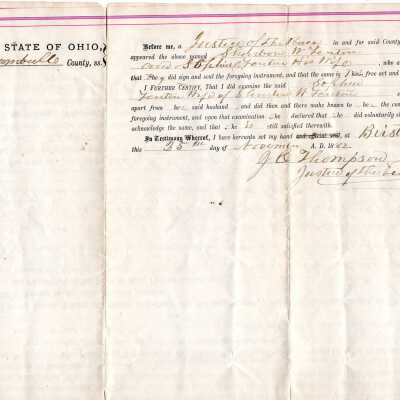 STATE OF OHIO, County, ss.
Before me, a Justice of the Peace in and for said County
appeared the above named W. Fenton
and Sophia Fenton His Wife, who a
that they did sign and seal the foregoing instrument, and that the same is free act and
I FURTHER CERTIFY, That I did examine the said Sophia
Fenton Wife of W Fenton
apart from he said husband and did then and there make known to he the con
foregoing instrument, and upon that examination he declared that he did voluntarily si
acknowledge the same, and that he is still satisfied therewith.
In Testimony Whereof, I have hereunto set my hand and official seal, at Brist
this 25th day of November A. D. 1882
J. O. Thompson
Justice of the Pe